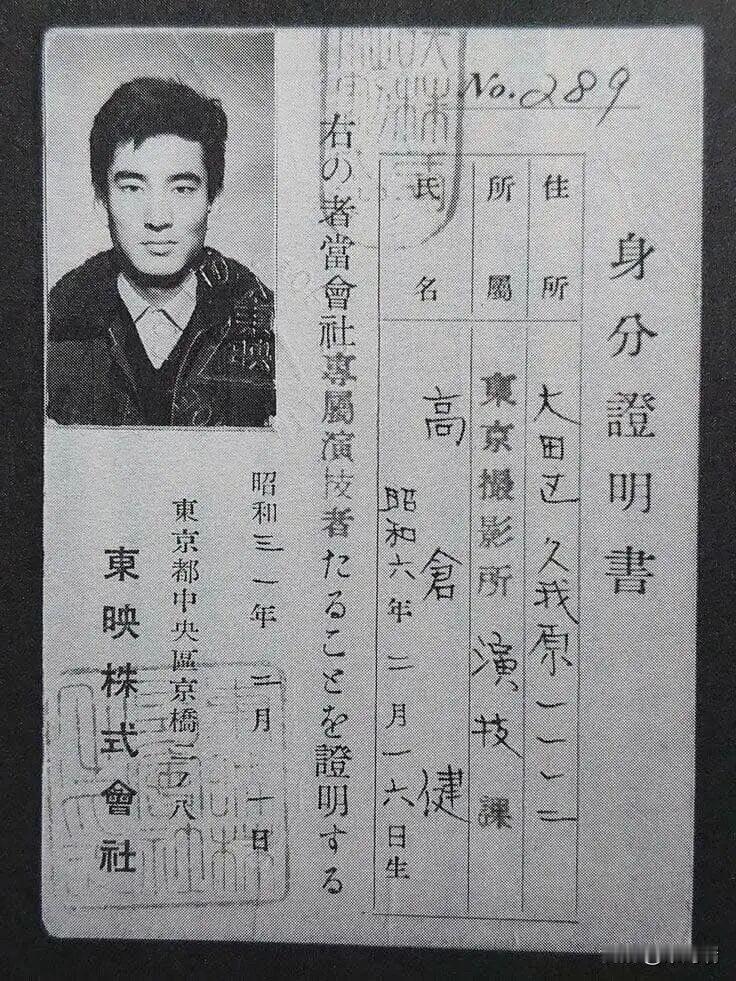 No. 289
身分證明書
住所 大田区 久我原一一、二
所屬 東京撮影所 演技課
氏名 高倉健
昭和六年二月一六日生
右の者當會社専屬演技者たることを證明する
昭和三一年二月一日
東京都中央區京橋二ノ八
東映株式會社
東映